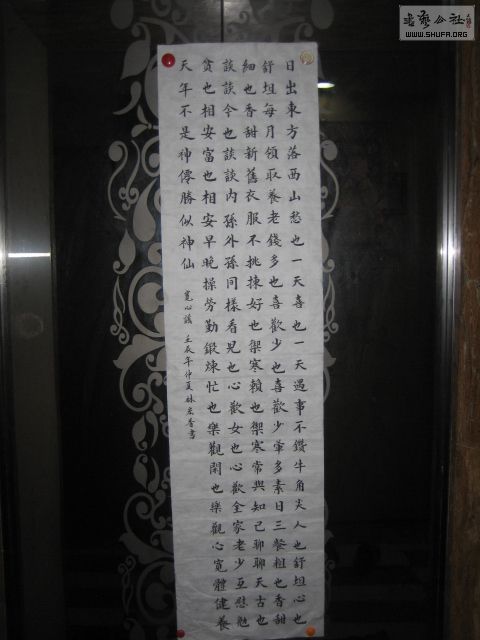 書藝公社
WWW.SHUFA.ORG
日出東方落西山愁也一天喜也一天遇事不鑽牛角尖人也舒坦心也
舒坦每月領取養老錢多也喜歡少也喜歡少葷多素日三餐粗也香甜
細也香甜新舊衣服不挑揀好也禦寒賴也禦寒常與知己聊聊天古也
談談今也談談內孫外孫同樣看兒也心歡女也心歡全家老少互慰勉
貧也相安富也相安早晚操勞勤鍛煉忙也樂觀閑也樂觀心寬體健養
天年不是神僊勝似神仙
寬心謠 壬辰年仲夏林香書